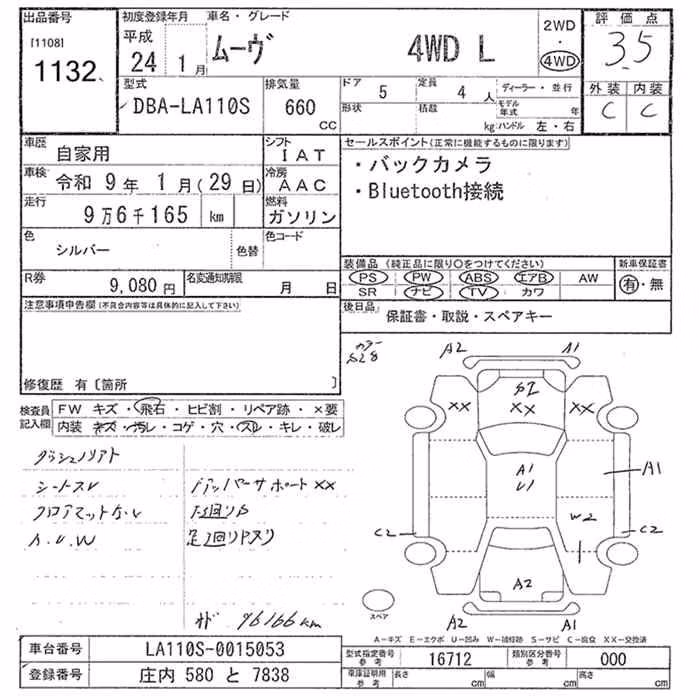 出品番号
[1108]
1132
初度登録年月
平成
24 1月
車名・グレード
ムーヴ 4WD L
2WD
・
4WD
評価点
3.5
外装 内装
C C
型式
DBA-LA110S
排気量
660
cc
ドア 5
定員 4人
ディーラー・並行
形状
積載
kg
モデル年式 年
ハンドル 左・右
車歴
自家用
シフト
IAT
車検
令和 9年 1月(29日)
冷房
AAC
走行
9万6千165 km
燃料
ガソリン
色
シルバー
色替
色コード
R券
9,080円
名変通知期限
月 日
セールスポイント(正常に機能するものに限ります)
・バックカメラ
・Bluetooth接続
装備品(純正品に限り○をつけてください)
新車保証書
PS PW ABS エアB AW
SR ナビ TV カワ
有・無
後日品
保証書・取説・スペアキー
注意事項申告欄(不具合内容等は具体的に記入して下さい)
修復歴 有〔箇所 〕
検査員
記入欄
FW キズ・飛石・ヒビ割・リペア跡・×要
内装 キズ・汚レ・コゲ・穴・スレ・キレ・破レ
シートスレ
フロアマットナシ
A.U.W
アッパーサポート××
下回りサビ
96166km
カラー
S28
A2 A1
S2
×× ×× ××
A1
U1
A1
W2
C2 C2
A2
スペア
A2 A1
A−キズ E−エクボ U−凹み W−補修跡 S−サビ C−腐食 XX−交換済
車台番号
LA110S-0015053
登録番号
庄内 580 と 7838
型式指定番号
参考
16712
類別区分番号
参考
000
車庫証明用
参考
長さ cm
幅 cm
高さ cm